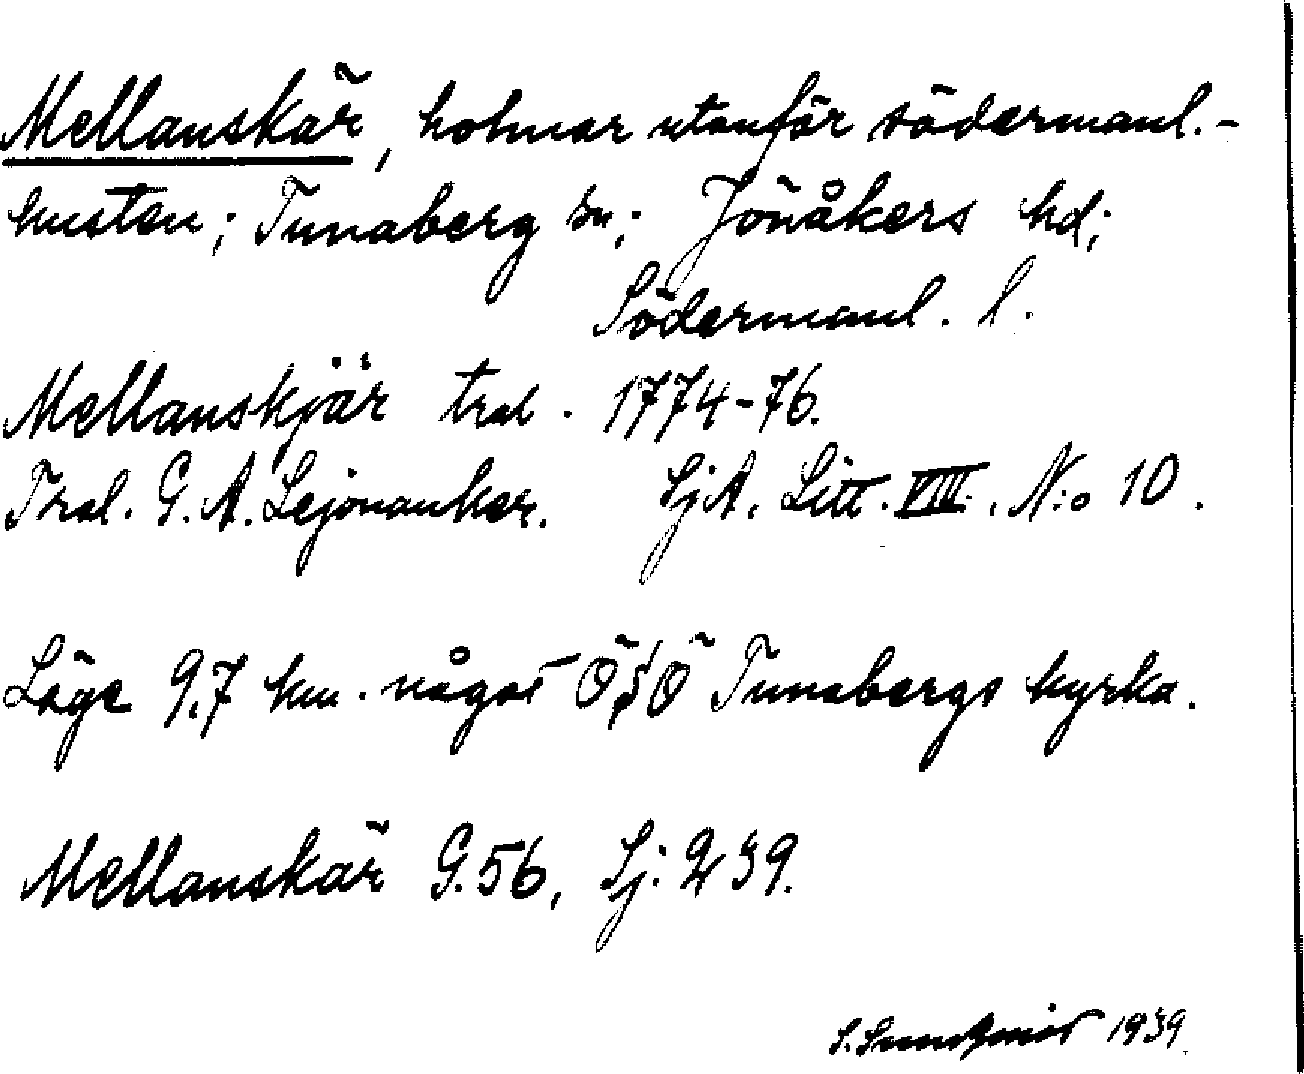 Mellanskär, holmar utanför södermanl.-
kusten; Tunaberg sn; Jönåkers hd;
Södermanl. l.
Mellanskjär tral. 1774-76.
Tral. G. A. Lejonanker. SjA. Litt. VIII. N:o 10.
Läge 9.7 km. något ÖSÖ Tunabergs kyrka.
Mellanskär G.56, Sj: 239.
S. Sundqvist 1939.